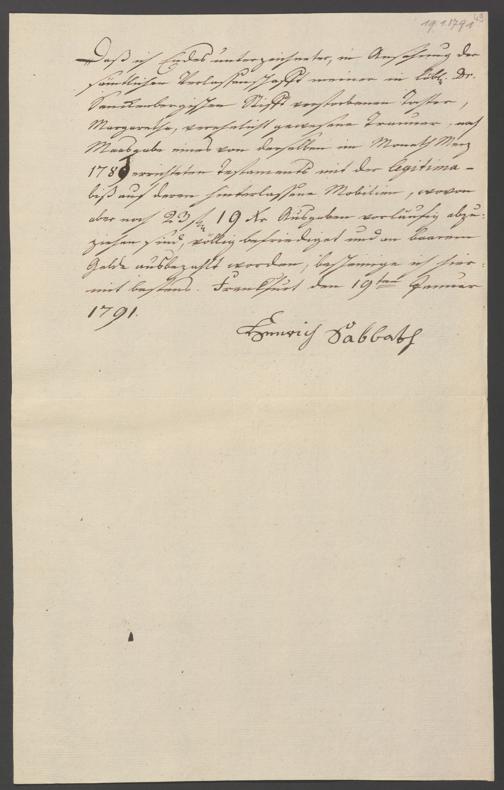 43
19.1.1791
Daß ich Endes unterzeichneter, in Ansehung der
sämtlichen Verlassenschafft meiner in löbl. Dr.
Senckenbergischen Stifft verstorbenen Tochter,
Margaretha, verehelicht gewesene Trauner, nach
Maasgabe eines von derselben im Monath Merz
178 errichteten Testaments mit der Legitima-
biß auf deren hinterlassene Mobilien, wovon
aber noch 23 19 Xr Ausgaben vorläufig abzu-
ziehen sind, völlig befriediget und an baarem
Gelde ausbezahlt worden, bescheinige ich hier-
mit bestens. Franckfurt den 19ten Januar
1791.
Henrich Sabbath